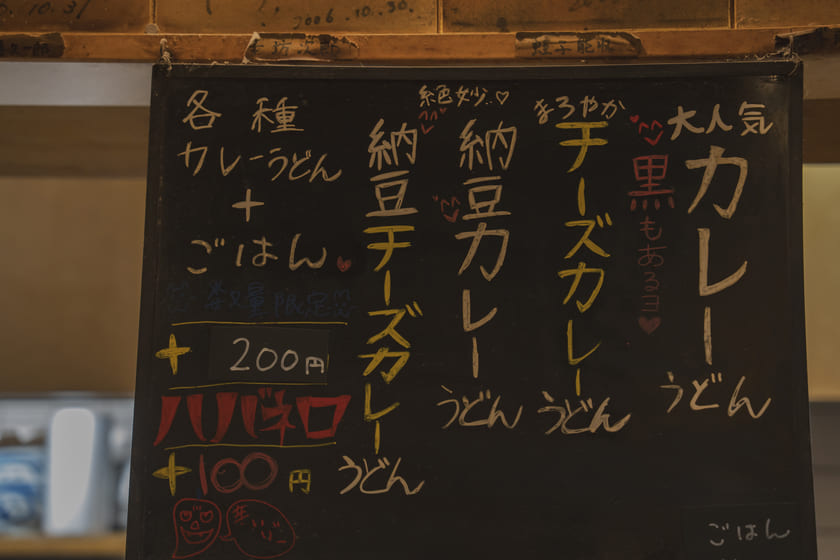 2006.10.30.
大人気
カレーうどん
黒もあるヨ
まろやか
チーズカレーうどん
絶妙
納豆カレーうどん
納豆チーズカレーうどん
各種
カレーうどん
+
ごはん
数量限定
+200円
ハバネロ
+100円
ごはん